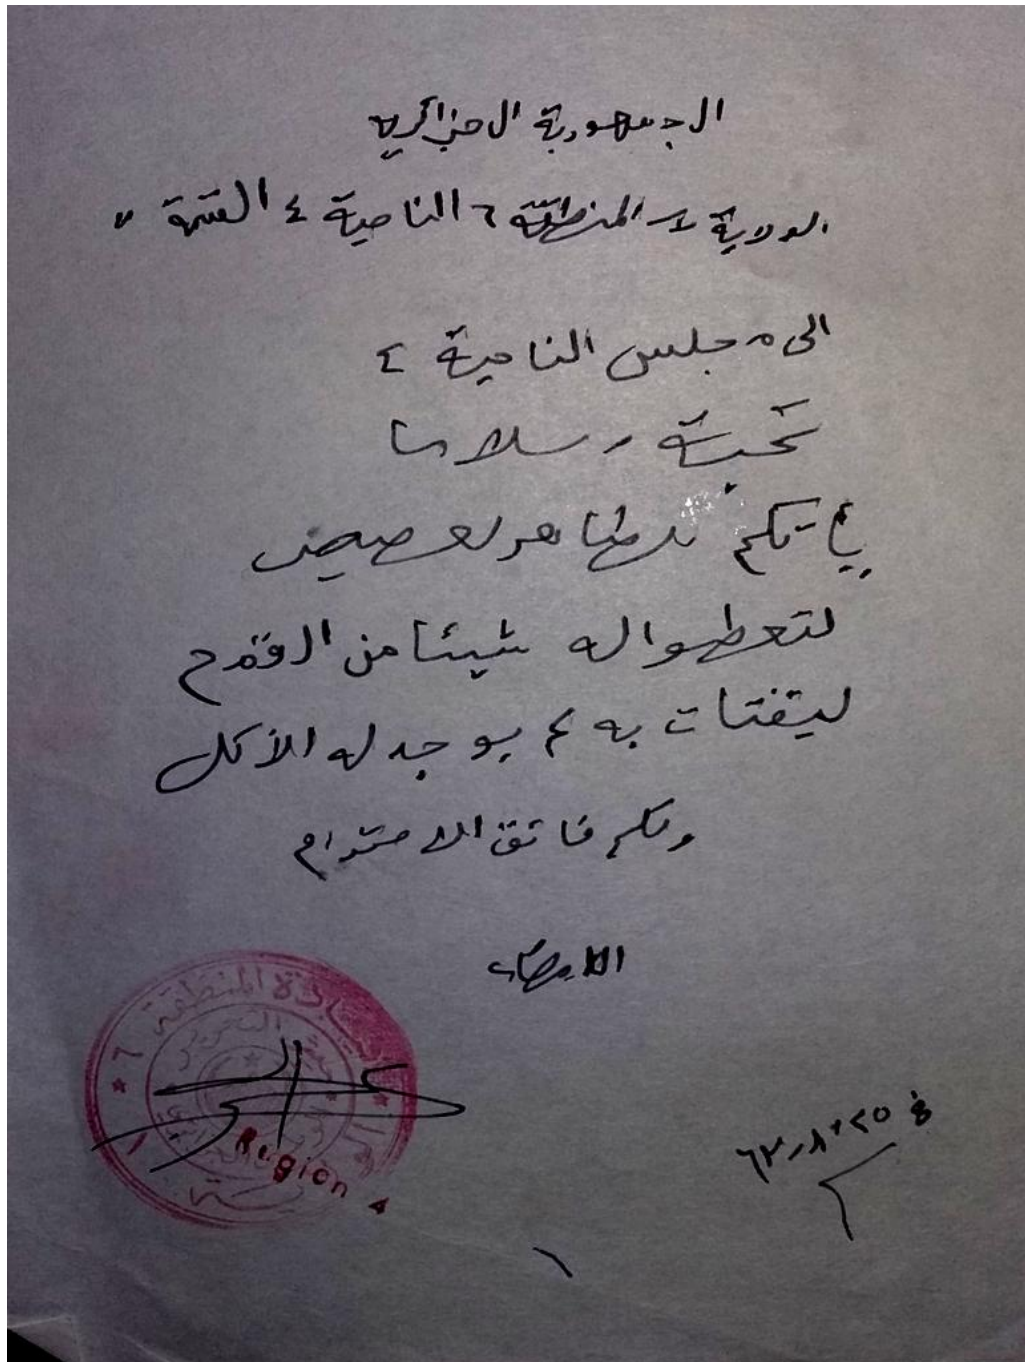 الجمهورية الجزائرية
الولاية المنطقة ٦ الناحية ٤ القسمة
الى مجلس الناحية ٤
تحية و سلاما
ياتكم
لتعطوا له شيئا من القمح
ليقتات به لم يوجد له الأكل
ولكم فائق الاحترام
الامضاء
المنطقة ٦
Région 4
في ٢٥